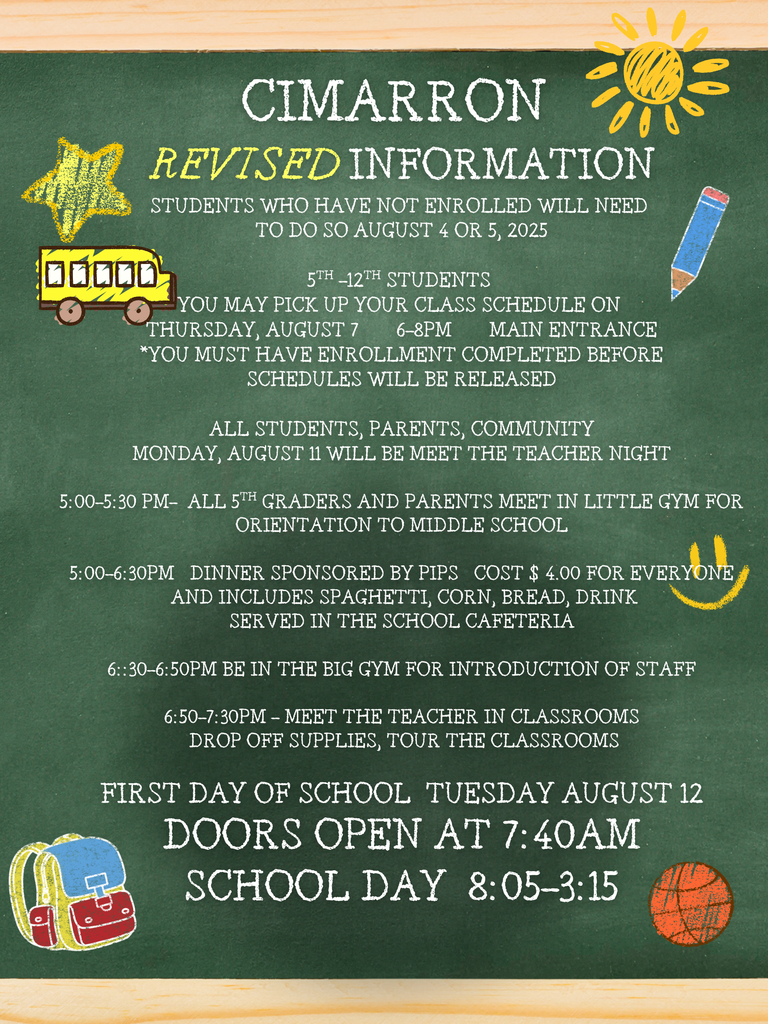 CIMARRON
REVISED INFORMATION
STUDENTS WHO HAVE NOT ENROLLED WILL NEED
TO DO SO AUGUST 4 OR 5, 2025
5TH –12TH STUDENTS
YOU MAY PICK UP YOUR CLASS SCHEDULE ON
THURSDAY, AUGUST 7 6–8PM MAIN ENTRANCE
*YOU MUST HAVE ENROLLMENT COMPLETED BEFORE
SCHEDULES WILL BE RELEASED
ALL STUDENTS, PARENTS, COMMUNITY
MONDAY, AUGUST 11 WILL BE MEET THE TEACHER NIGHT
5:00–5:30 PM– ALL 5TH GRADERS AND PARENTS MEET IN LITTLE GYM FOR
ORIENTATION TO MIDDLE SCHOOL
5:00–6:30PM DINNER SPONSORED BY PIPS COST $ 4.00 FOR EVERYONE
AND INCLUDES SPAGHETTI, CORN, BREAD, DRINK
SERVED IN THE SCHOOL CAFETERIA
6::30–6:50PM BE IN THE BIG GYM FOR INTRODUCTION OF STAFF
6:50–7:30PM – MEET THE TEACHER IN CLASSROOMS
DROP OFF SUPPLIES, TOUR THE CLASSROOMS
FIRST DAY OF SCHOOL TUESDAY AUGUST 12
DOORS OPEN AT 7:40AM
SCHOOL DAY 8:05–3:15